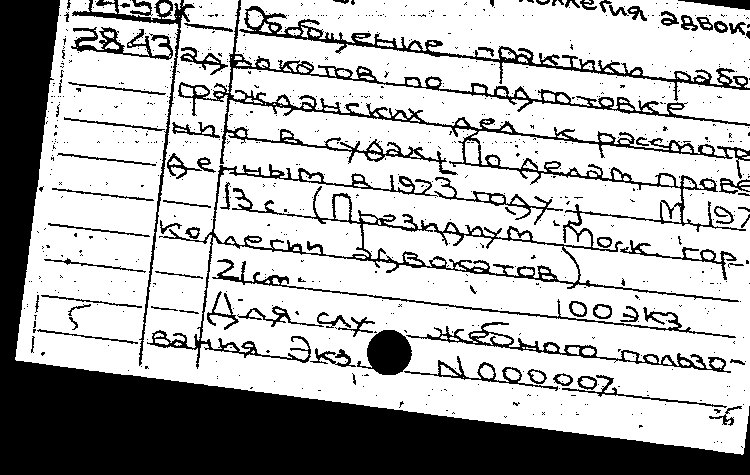 коллегия адвока
14-50к
2843
Обобщение практики рабо
адвокатов по подготовке
гражданских дел к рассмотр
нию в судах [По делам, прове
денным в 1973 году] М., 197
13 с. (Президиум Моск. гор.
коллегии адвокатов).
21 cm. 100 экз.
Для служебного пользо-
вания. Экз. N 000007,